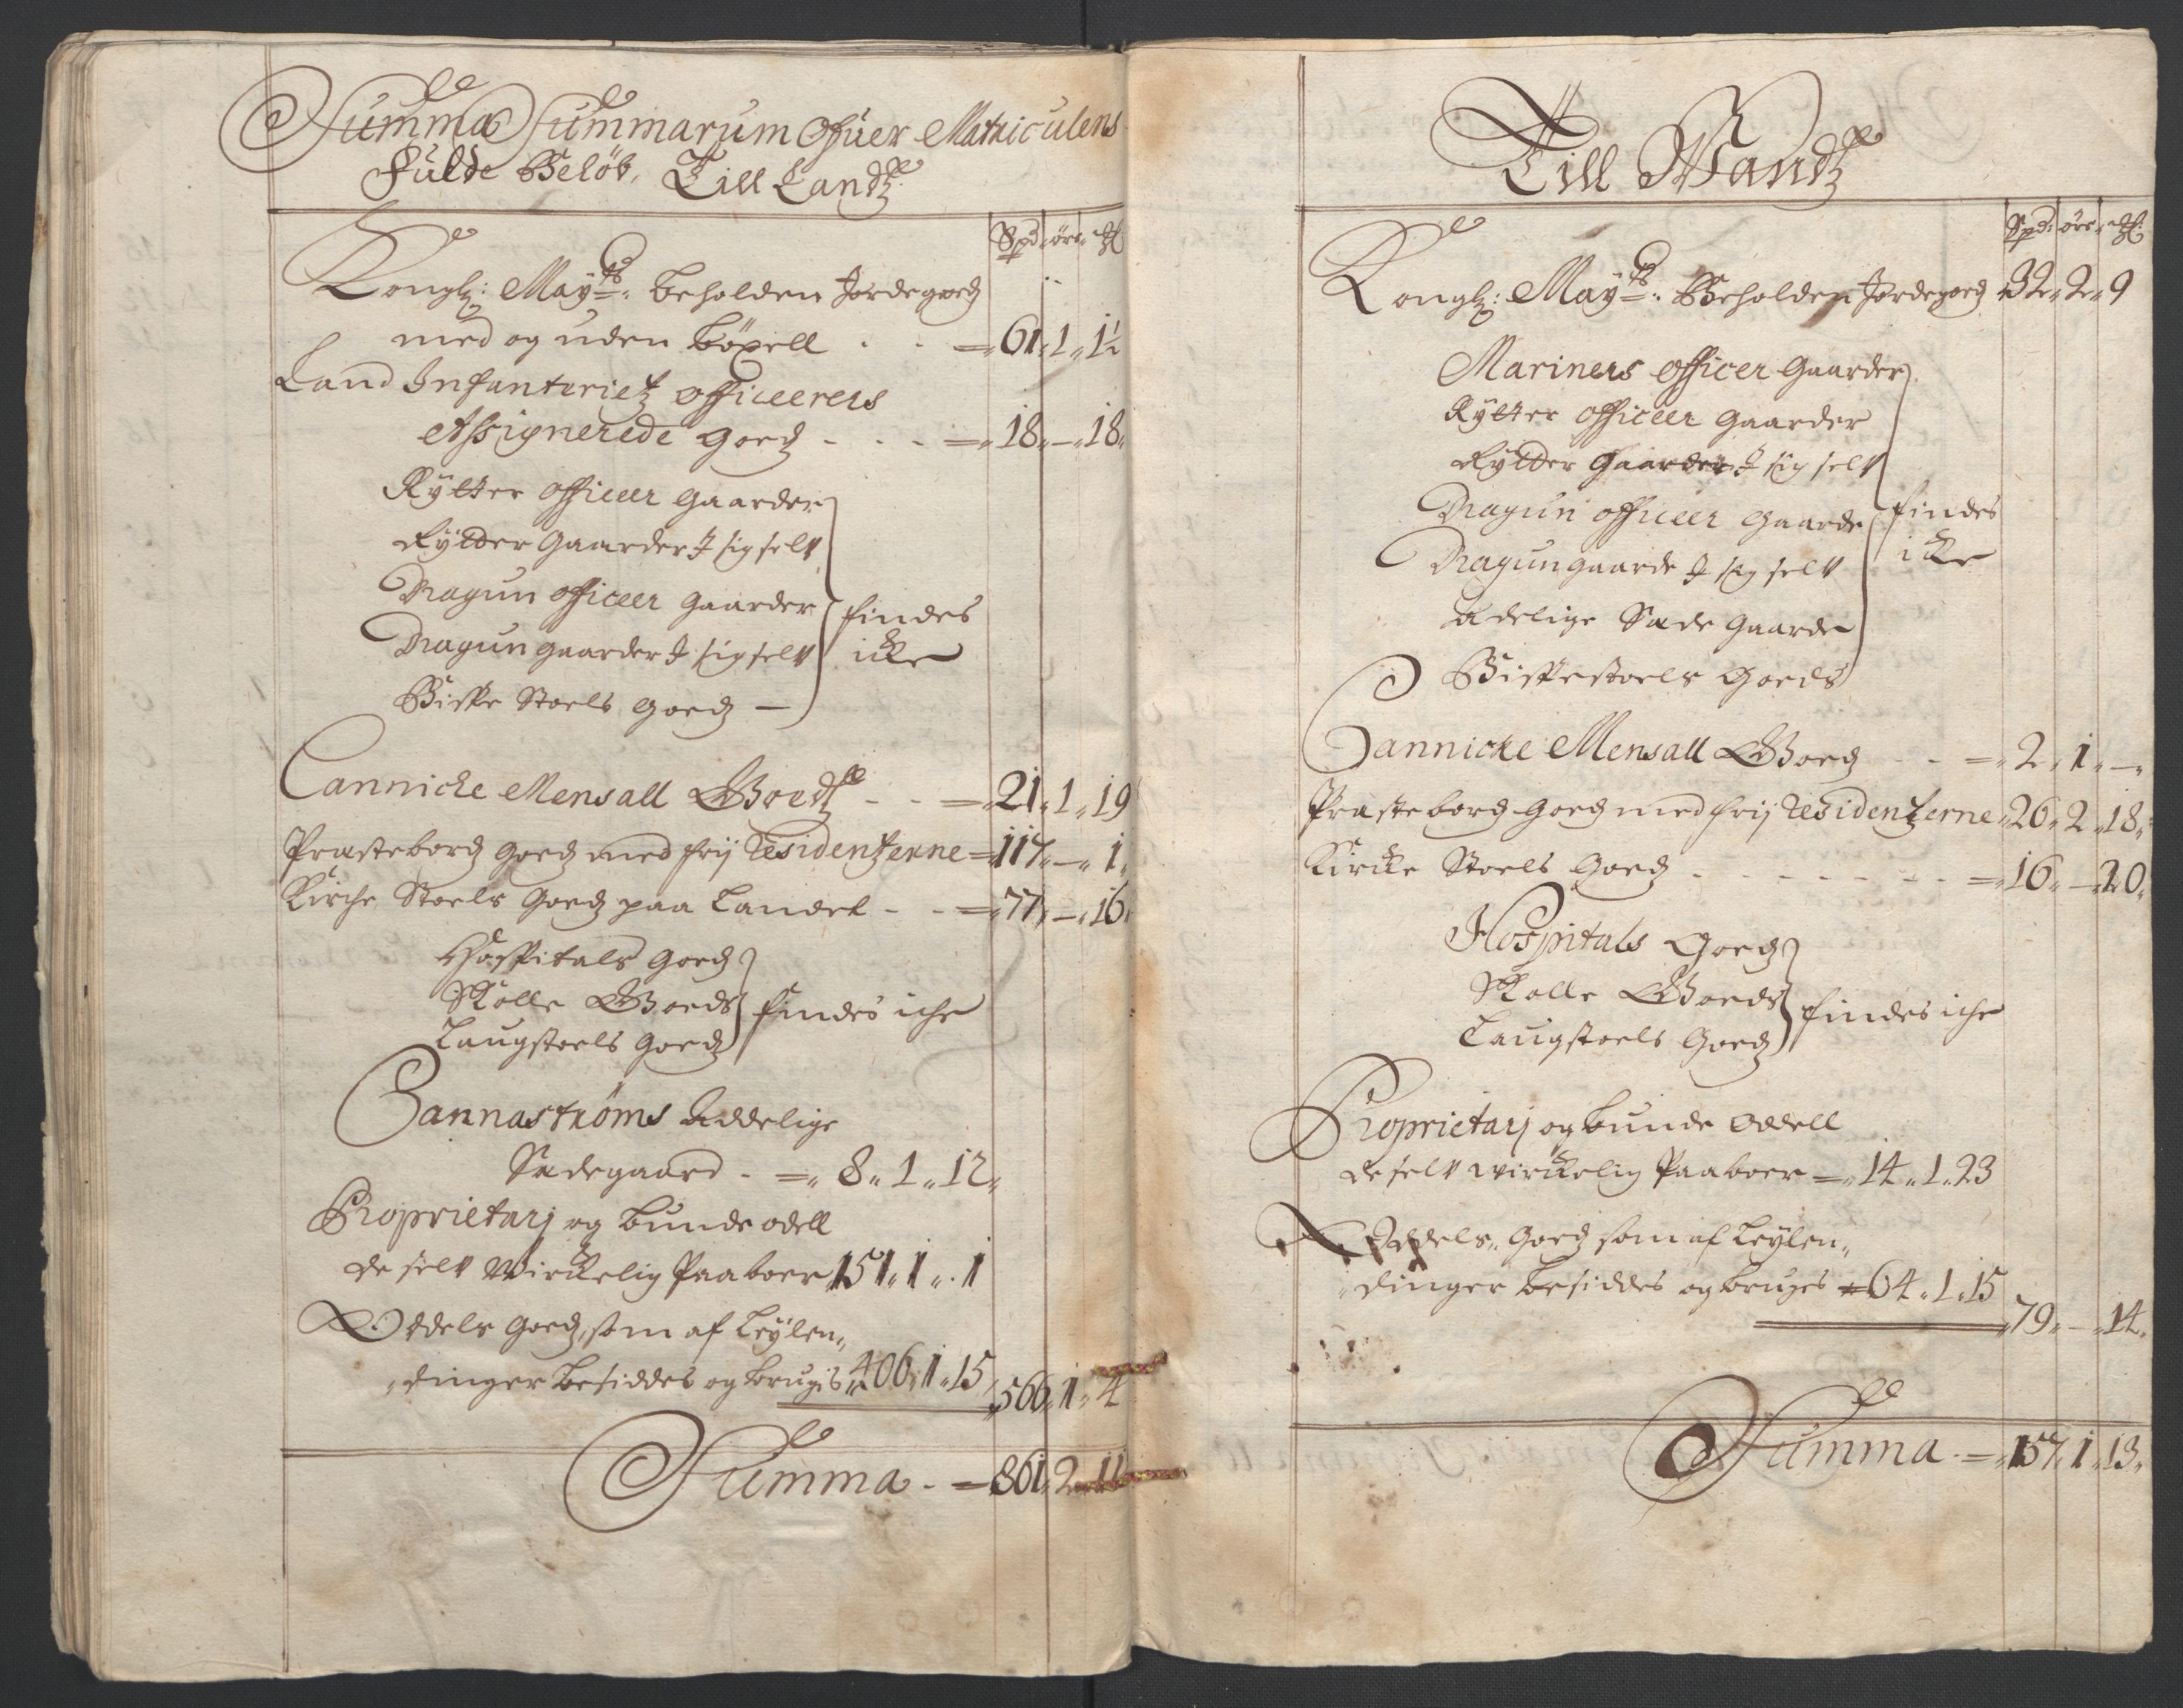 Summa Summarum Ofuer Matriculens
Fulde Beløb, Till Landtz
Spd: ører mk
Kongl: Mayts: beholden Jordegoedz
med og uden böxell - - = 61 " 1 " 1½
Land Infanterietz officeerers
Assignerede goedz - - - = 18 " — " 18 "
Rytter officeer gaarder
Rytter Gaarder J sig selv
Dragun officeer gaarder
Dragun gaarder J sig selv
Bispe Stoels goedz —
findes
icke
Cannicke Mensall Goedtz - - = 21 " 1 " 19
Præstebordz goedz med frij residentzerne = 117 " — " 1 "
Kirche Stoels goedz paa Landet - - = 77 " — " 16 "
Hospitals goedz
Skolle Goeds
Laugstoels goedz
findes iche
Dannastrøms Addelige
Sædegaard - = " 8 " 1 " 12 "
Proprietarj og bunde odell
de selv Wirckelig Paaboer 151 " 1 " 1
Oddels goedz, som af Leylen"
"dinger besiddes og brugis " 406 " 1 " 15 "
566 " 1 " 4
Summa - = 861 " 2 " 11
Till Wandtz
Spd: ører mk
Kongl: Mayts: Beholden Jordegoedz 32 " 2 " 9
Mariners officer Gaarder
Rytter officeer Gaarder
Rytter Gaarder J sig selv
Dragun officeer Gaarde
Dragungaarde J sig selv
Adelige Sæde Gaarde
Bispestoels Goeds
findes
icke
Cannicke Mensall Goedz - - = " 2 " 1 " — "
Præstebordz Goedz med frij residentzerne " 26 " 2 " 18 "
Kircke Stoels Goedz - - - - - - = " 16 " — " 20 "
Hospitals Goedz
Skolle Goeds
Laugstoels Goedz
findes iche
Proprietarj og bunde Odell
de selv wirckelig Paaboer = " 14 " 1 " 23
Oddels " Goedz som af Leylen "
"dinger besiddes og bruges = 64 " 1 " 15
79 " — " 14 "
Summa - = " 157 " 1 " 13 "